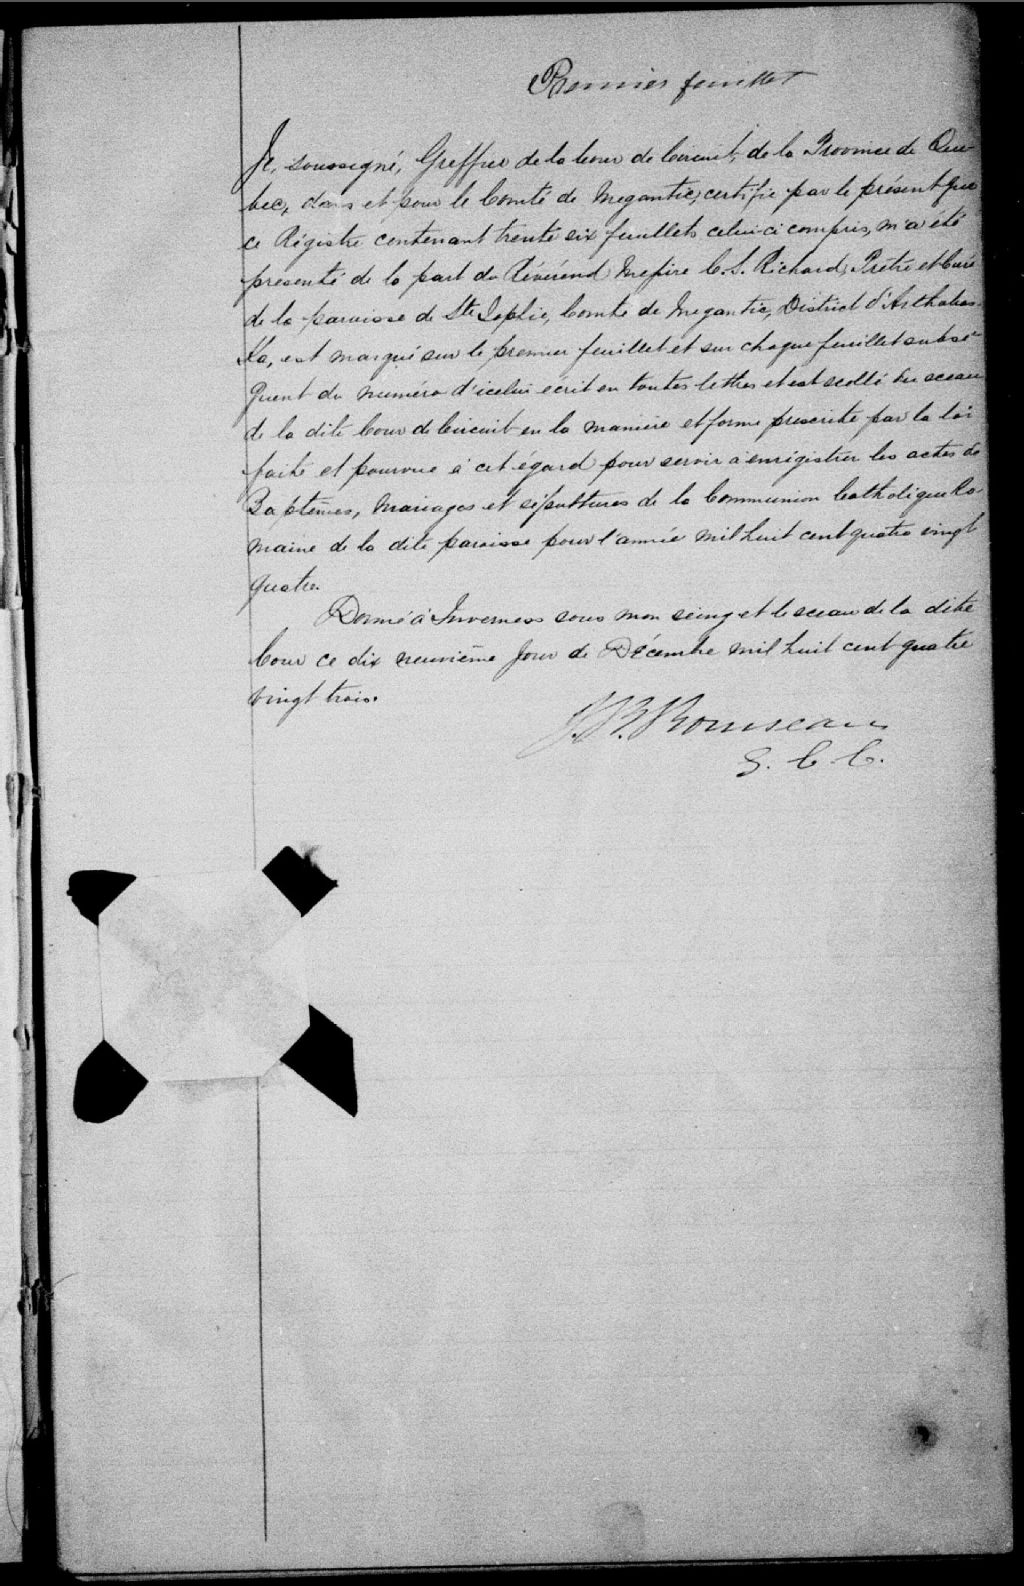 Premier feuillet
Je, soussigné, Greffier de la Cour de Circuit, de la Province de Qué-
bec, dans et pour le Comté de Megantic, certifie par le présent que
ce Régistre contenant trente six feuillets celui-ci compris, m'a été
presenté de la part du Révérend Messire C. S. Richard, Prêtre et Curé
de la paroisse de Ste Sophie, Comté de Megantic, District d'Arthabas-
Ka, est marqué sur le premier feuillet et sur chaque feuillet subsé-
quent du numéro d'icelui écrit en toutes lettres et est scellé du sceau
de la dite Cour de Circuit en la manière et forme prescrite par la loi
faite et pourvue à cet égard pour servir à enrégistrer les actes de
Baptêmes, Mariages et sépultures de la Communion Catholique Ro-
maine de la dite paroisse pour l'année mil huit cent quatre vingt
quatre.
Donné à Inverness sous mon seing et le sceau de la dite
Cour ce dix neuvième jour de Décembre mil huit cent quatre
vingt trois.
J. B. Rousseau
G. C. C.